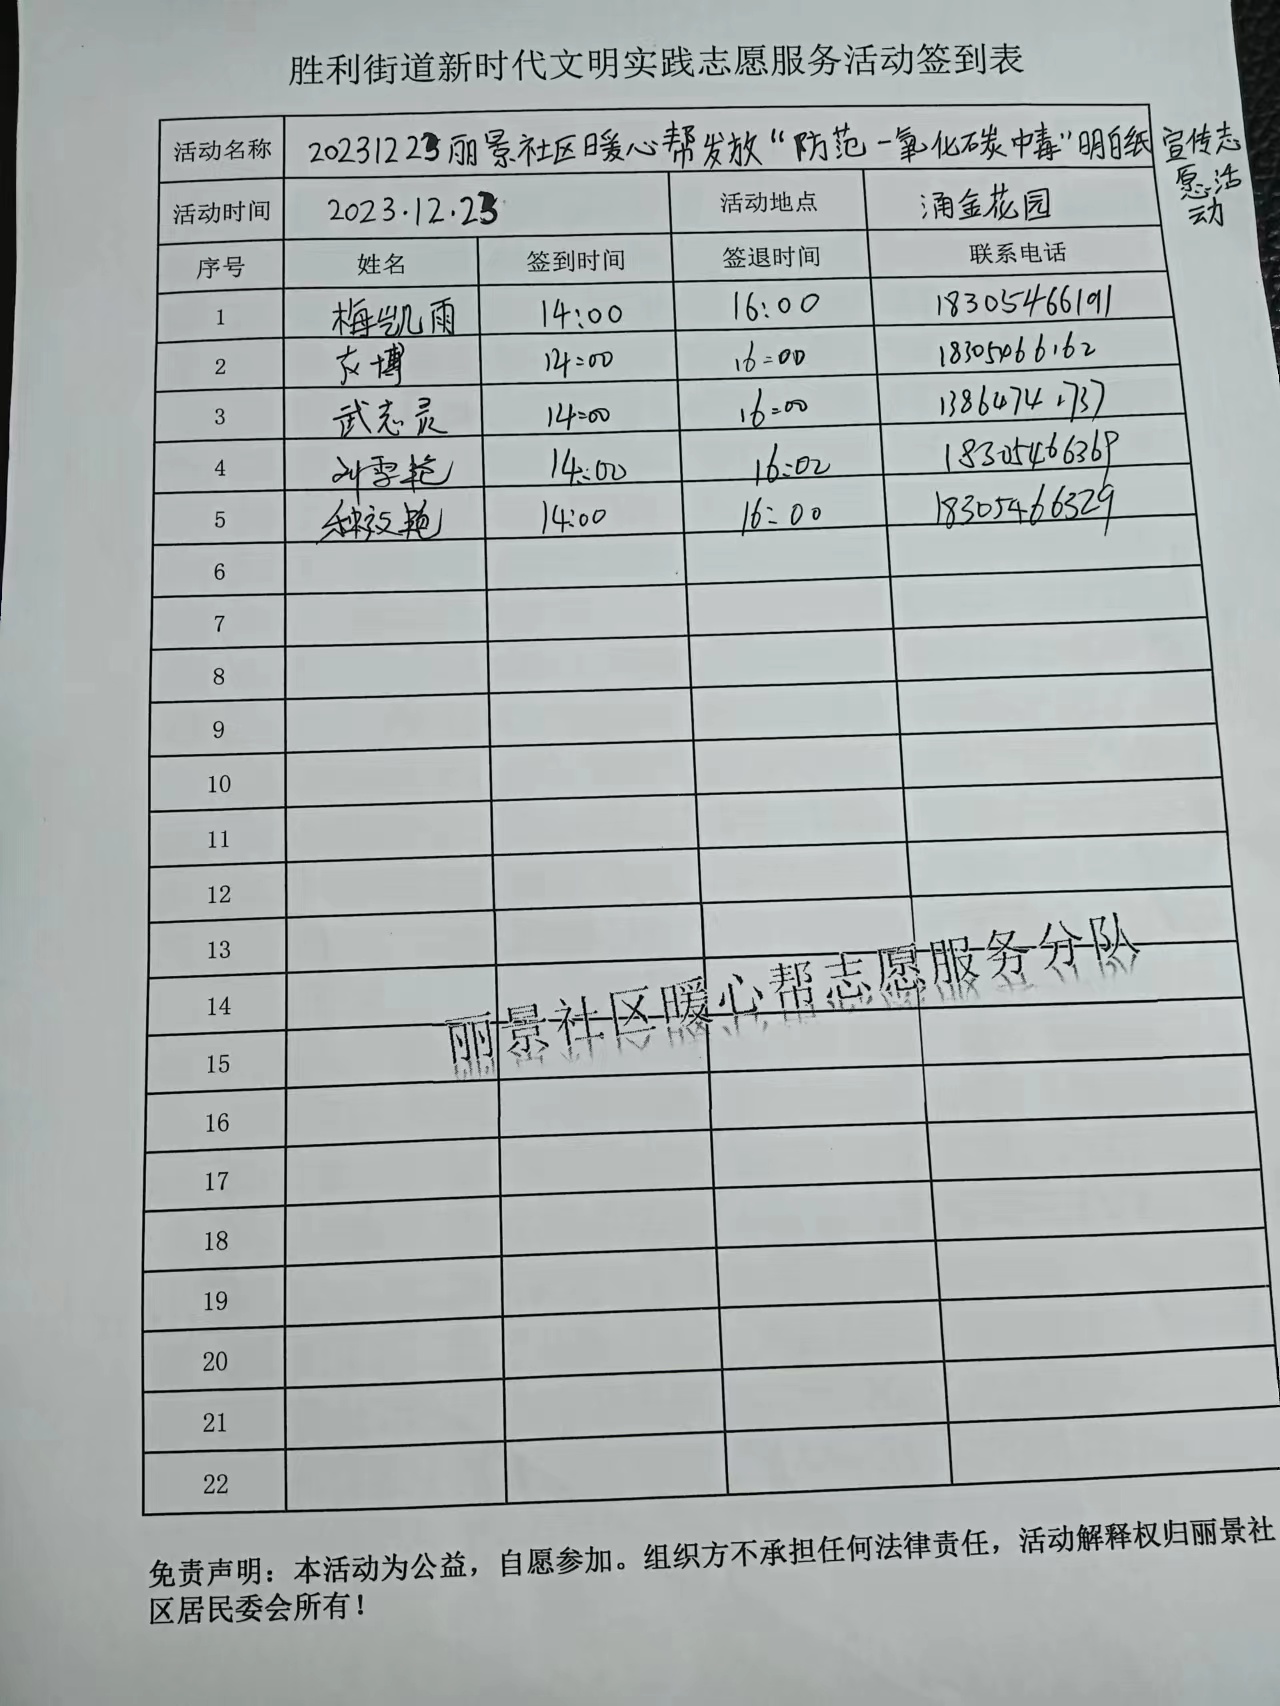 胜利街道新时代文明实践志愿服务活动签到表
活动名称 20231223丽景社区暖心帮发放“防范一氧化碳中毒”明白纸宣传志愿活动
活动时间 2023.12.23 活动地点 涌金花园
序号 姓名 签到时间 签退时间 联系电话
1 梅凯雨 14:00 16:00 18305466191
2 14:00 16:00 18305466162
3 武志灵 14:00 16:00
4 刘雪艳 14:00 16:00 18305466369
5 14:00 16:00 18305466329
6
7
8
9
10
11
12
13
14
丽景社区暖心帮志愿服务分队
15
16
17
18
19
20
21
22
免责声明：本活动为公益，自愿参加。组织方不承担任何法律责任，活动解释权归丽景社
区居民委会所有！